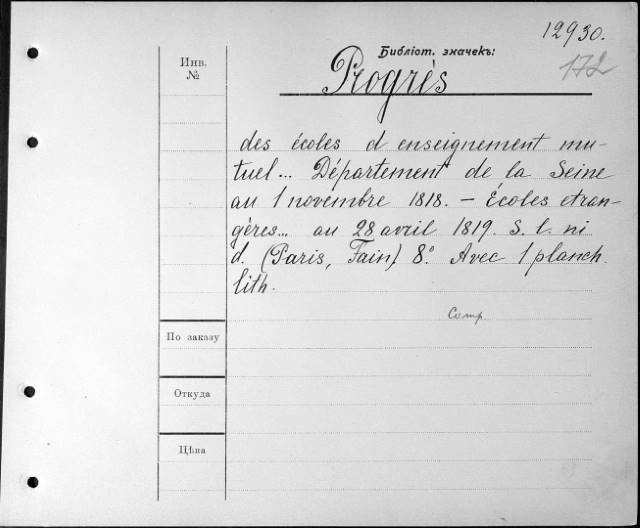 12930.
Библіот. значекъ:
172
Инв.
№
Progrès
des écoles d enseignement mu-
tuel... Département de la Seine
au 1 novembre 1818. – Écoles etran-
gères... au 28 avril 1819. S. l. ni
d. (Paris, Fain) 8.° Avec 1 planch.
lith.
Comp.
По заказу
Откуда
Цѣна